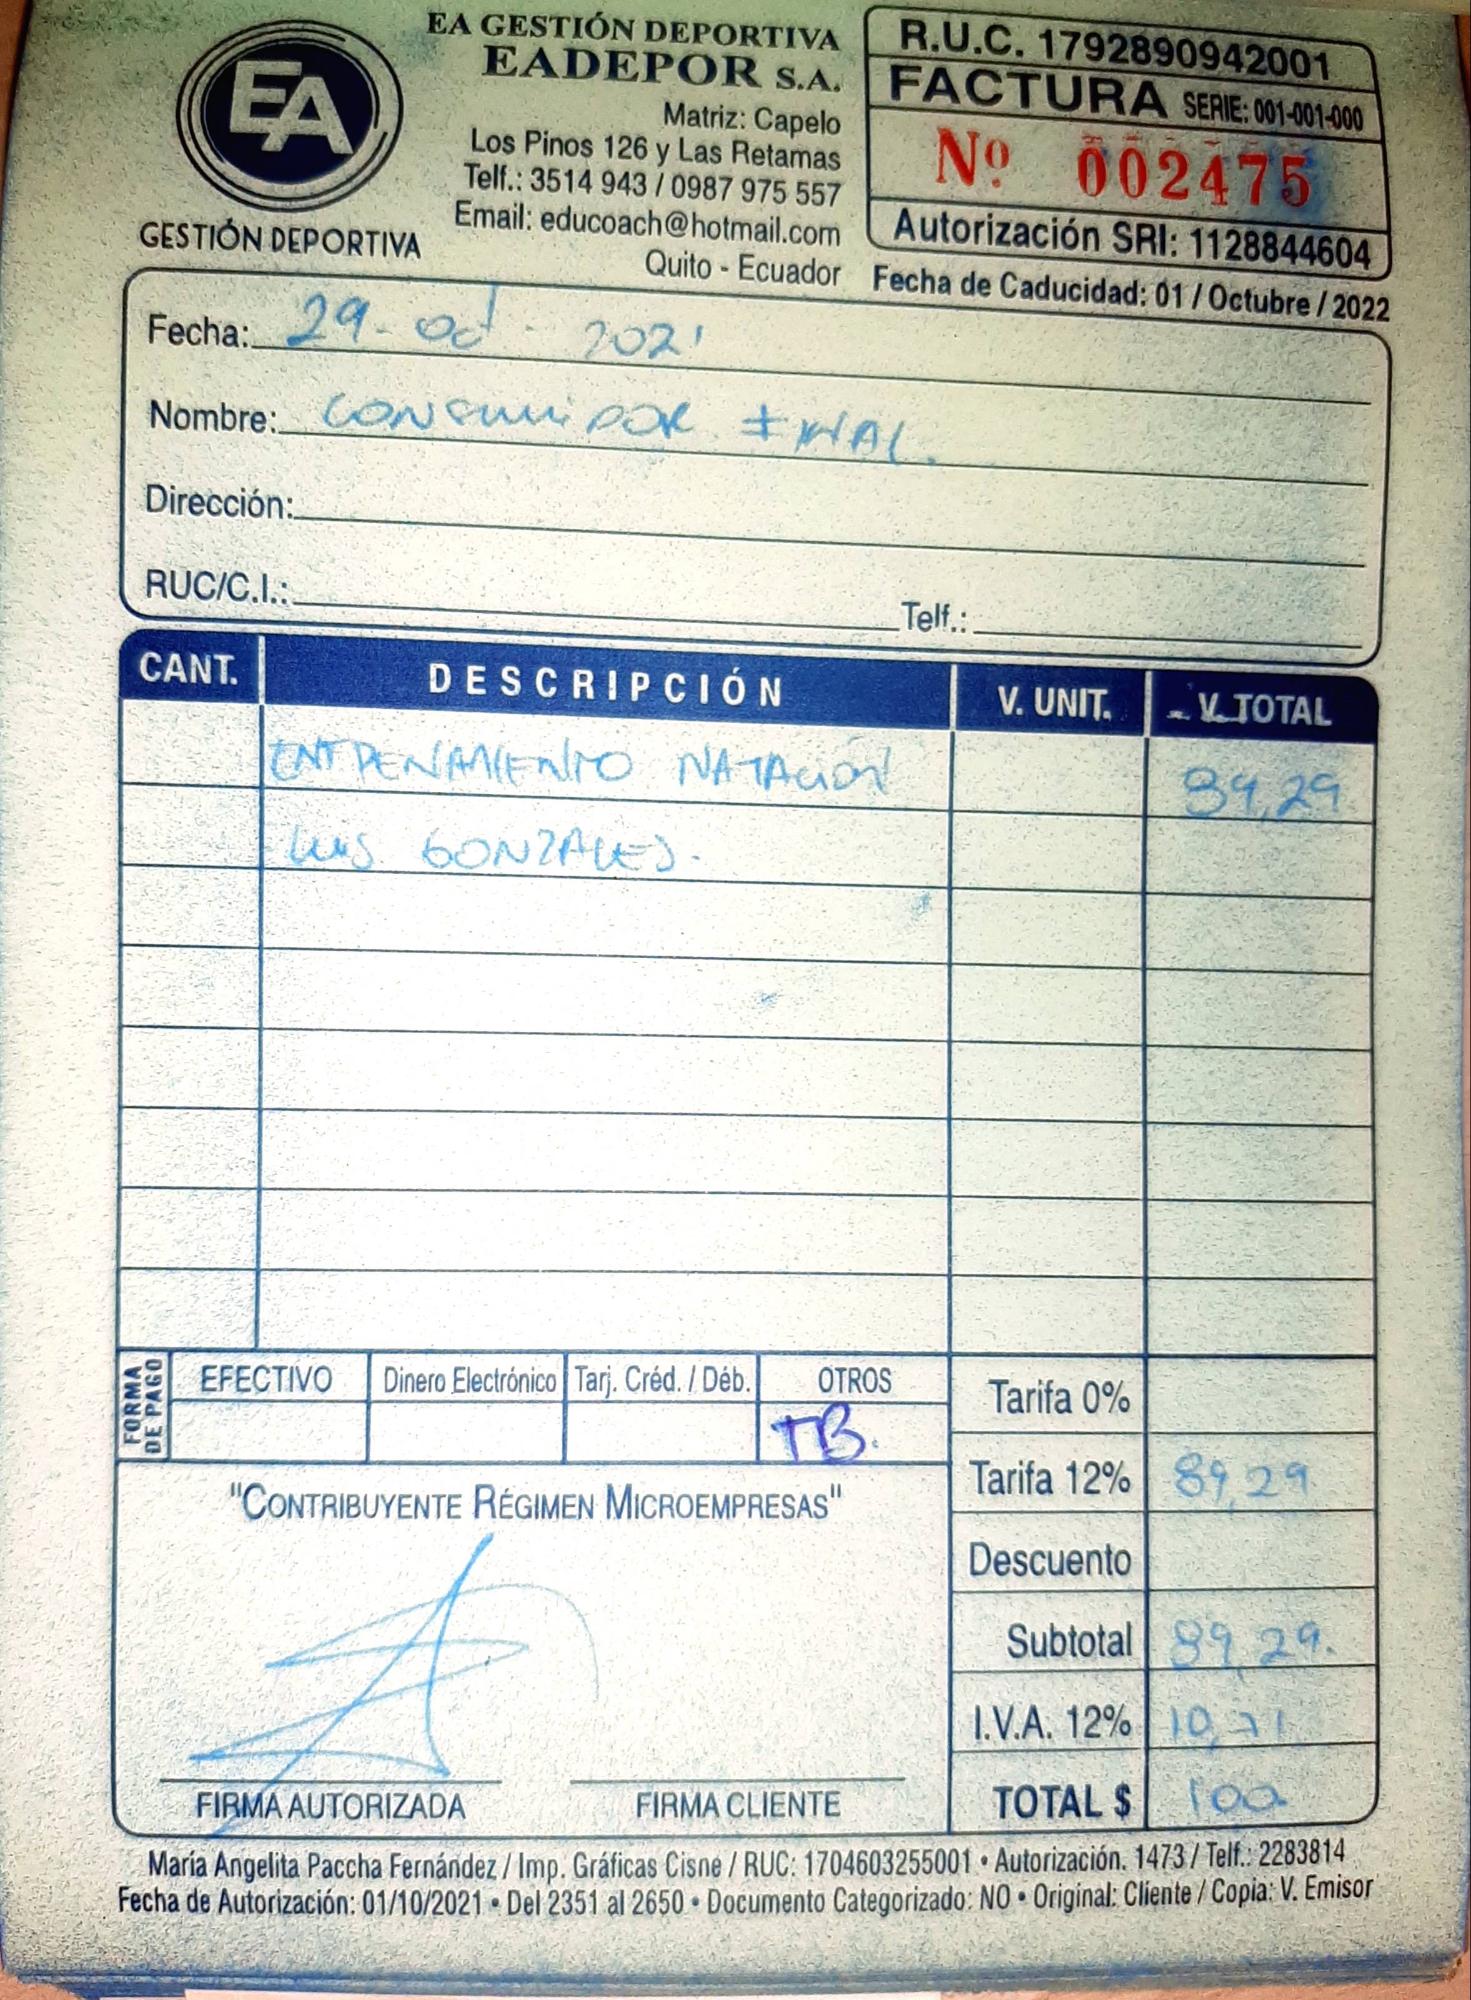 EA GESTIÓN DEPORTIVA
EADEPOR S.A.
Matriz: Capelo
Los Pinos 126 y Las Retamas
Telf.: 3514 943 / 0987 975 557
Email: educoach@hotmail.com
Quito - Ecuador
EA
GESTIÓN DEPORTIVA
R.U.C. 1792890942001
FACTURA SERIE: 001-001-000
Nº 002475
Autorización SRI: 1128844604
Fecha de Caducidad: 01 / Octubre / 2022
Fecha: 29 - oct - 2021
Nombre: CONSUMIDOR FINAL.
Dirección:
RUC/C.I.: Telf.:
CANT. DESCRIPCIÓN V. UNIT. V. TOTAL
ENTRENAMIENTO NATACIÓN 89,29
LUIS GONZALES.
FORMA DE PAGO
EFECTIVO Dinero Electrónico Tarj. Créd. / Déb. OTROS
TB.
Tarifa 0%
Tarifa 12% 89,29
Descuento
Subtotal 89,29.
I.V.A. 12% 10,71
TOTAL $ 100
"CONTRIBUYENTE RÉGIMEN MICROEMPRESAS"
FIRMA AUTORIZADA FIRMA CLIENTE
María Angelita Paccha Fernández / Imp. Gráficas Cisne / RUC: 1704603255001 • Autorización. 1473 / Telf.: 2283814
Fecha de Autorización: 01/10/2021 • Del 2351 al 2650 • Documento Categorizado: NO • Original: Cliente / Copia: V. Emisor